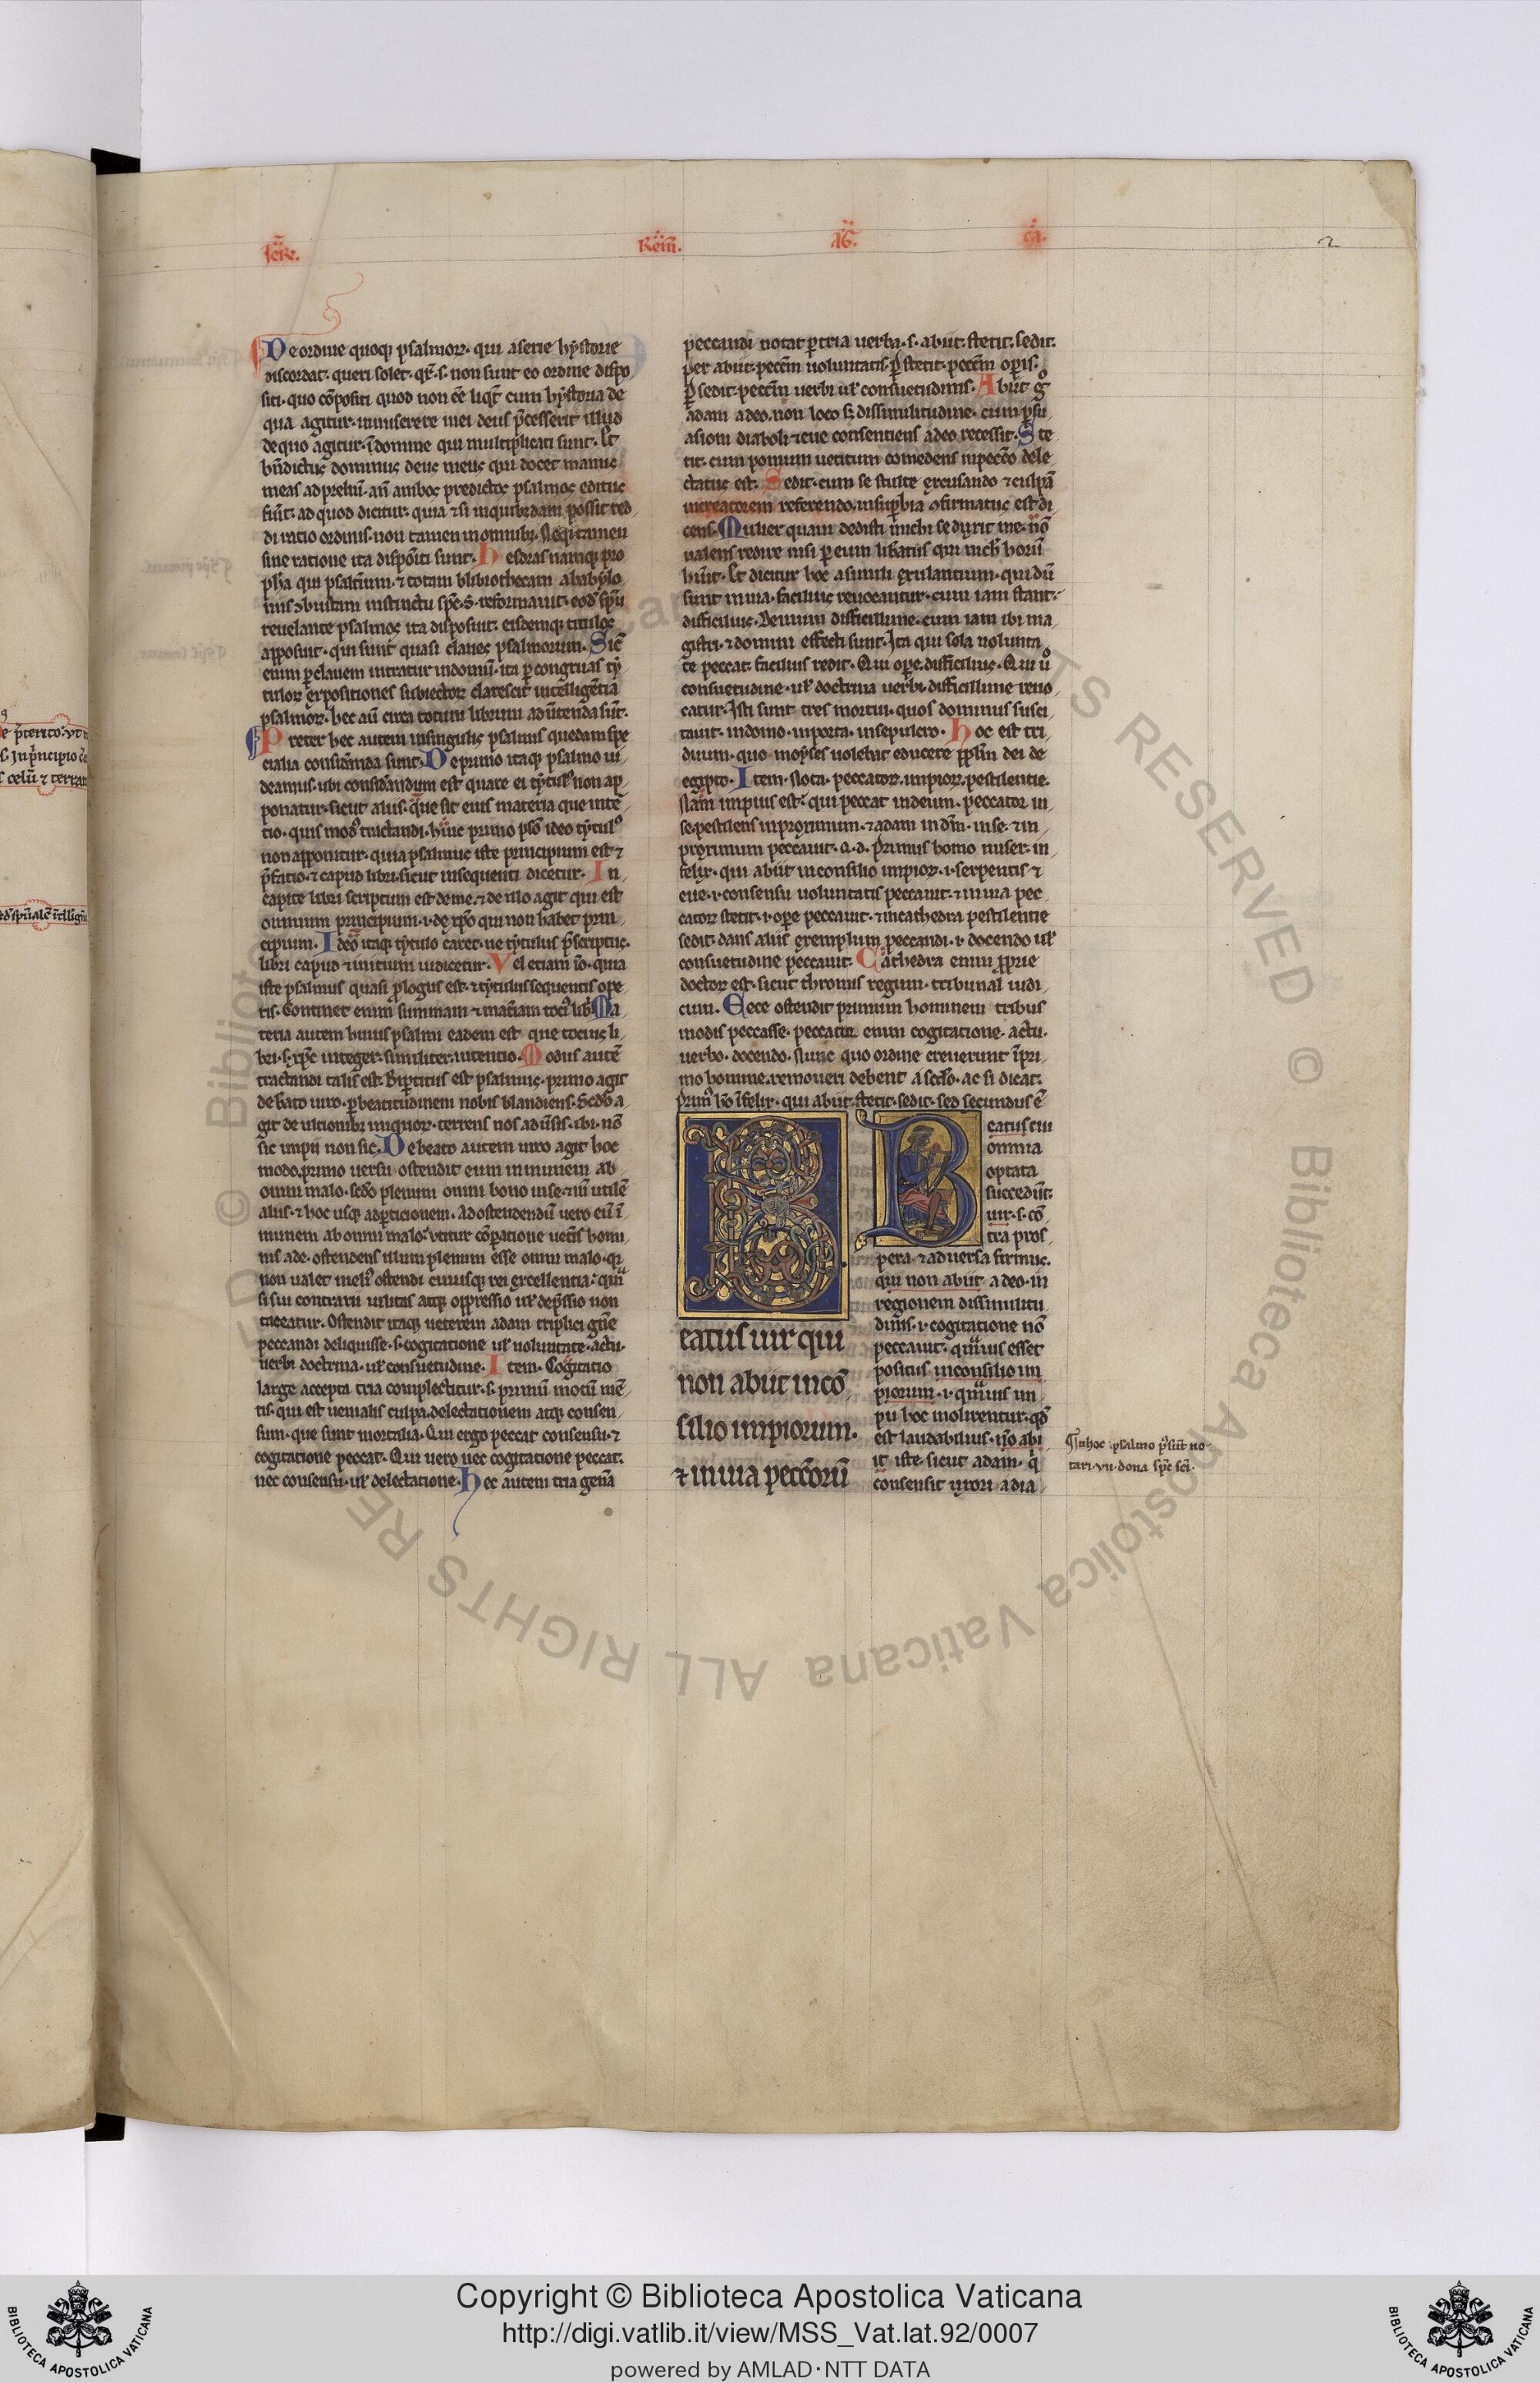 Iere.
Rem̅.
AG.
ca.
2
De ordine quoq; psalmoꝝ. qui a serie hystorie
discordat. queri solet. qr̅. s. non sunt eo ordine dispo
siti. quo co̅positi quod non ee̅ liqt̅ cum hystoria de
qua agitur. in miserere mei deus p̅cesserit illud
de quo agitur. i̅ domine qui multiplicati sunt. Et
bn̅dictus dominus deus meus qui docet manus
meas ad preliu̅. an̅ ambos predictos psalmos editus
sit. ad quod dicitur. quia ⁊ si in quibusdam possit red
di ratio ordinis. non tamen in omnib;. Neq; tamen
sine ratione ita dispo̅iti sunt. Hesdras namq; pro
ph̅a qui psalt̅ium. ⁊ totam blibiothecam a babylo
niis ꝯbustam instinctu sp̅c. s. reformauit. eod̅ sp̅u
reuelante psalmos ita disposuit. eisdemq; titulos
apposuit. qui sunt quasi claues psalmorum. Sic̅
enim ꝑ clauem intratur in domu̅. ita ꝑ congruas ty
tuloꝝ expositiones subiectoꝝ clarescit intellige̅tia
psalmoꝝ. hec au̅ circa totum librum aduertenda su̅t.
Preter hec autem in singulis psalmis quedam spe
cialia consid̅anda sunt. De primo itaq; psalmo ui
deamus. ubi consid̅andum est quare ei tytul᷒ non ap
ponatur. sicut aliis. que sit eius materia que inte̅
tio. quis mod᷒ tractandi. huic primo ps̅o ideo tytul᷒
non apponitur. quia psalmus iste principium est ⁊
p̅fatio. ⁊ capud libri. sicut in sequenti dicetur. In
capite libri scriptum est de me. ⁊ de illo agit qui est
omnium principium. i. de xp̅o qui non habet prin
cipium. Ideo itaq; tytulo caret. ne tytulus p̅scriptus.
libri capud ⁊ initium iudicetur. Vel etiam io̅. quia
iste psalmus quasi ꝓlogus est. ⁊ tytulus sequentis ope
ris. Continet enim summam ⁊ mat̅iam toci᷒ lib̅. Ma
teria autem huius psalmi eadem est que tocius li
bri. s. xp̅c integer. similiter. intentio. Modus aute̅
tractandi talis est. Bip̅titus est psalmus. primo agit
de b̅ato uiro. ꝑ beatitudinem nobis blandiens. Sc̅do a
git de ultionib; iniquoꝝ. terrens nos aduersis. ibi. no̅
sic impii non sic. De beato autem uiro agit hoc
modo. primo uersu ostendit eum inmunem ab
omni malo. sc̅do plenum omni bono in se. ⁊ in̅ utile̅
aliis. ⁊ hoc usq; ad ꝑticionem. Ad ostendendu̅ uero eu̅ i̅
munem ab omni malo. utitur co̅paratione uet̅is homi
nis ade. ostendens illum plenum esse omni malo. qr̅
non ualet meli᷒ ostendi cuiusq; rei excellentia. qua̅
si sui contrarii uilitas atq; oppressio ul̅ dep̅ssio non
taceatur. Ostendit itaq; ueterem adam triplici gn̅e
peccandi deliquisse. s. cogitatione ul̅ uoluntate. actu.
uerbi doctrina. ul̅ consuetudine. Item. Cogitatio
large accepta tria complectitur. s. primu̅ motu̅ me̅
tis. qui est uenialis culpa. delectationem atq; consen
sum. que sunt mortalia. Qui ergo peccat consensu. ⁊
cogitatione peccat. Qui uero nec cogitatione peccat.
nec consensu. ul̅ delectatione. Hec autem tria gen̅a
peccandi notat ꝑ tria uerba. s. abiit. stetit. sedit.
per abiit. pecc̅m uoluntatis. ꝑ stetit. pecc̅m op̅is.
ꝑ sedit. pecc̅m uerbi ul̅ consuetudinis. Abiit gͦ
adam a deo. non loco s; dissimilitudine. cum p̅su
asioni diaboli ⁊ eue consentiens a deo recessit. Ste
tit. cum pomum uetitum comedens in pecc̅o dele
ctatus est. Sedit. cum se stulte excusando ⁊ culpa̅
in creatorem referendo. in sup̅bia ꝯfirmatus est. di
cens. Mulier quam dedisti michi seduxit me. no̅
ualens redire nisi ꝑ eum lib̅atus qui nich̅ horu̅
hu̅it. Et dicitur hoc a simili exulantium. qui du̅
sunt in uia. facilius reuocantur. cum iam stant.
difficilius. Demum difficillime. cum iam ibi ma
gistri. ⁊ domini effecti sunt. Ita qui sola uolunta
te peccat. facilius redit. Qui op̅e. difficilius. Qui uͦ
consuetudine. ul̅ doctrina uerbi. difficillime reuo
catur. Isti sunt tres mortui. quos dominus susci
tauit. in domo. in porta. in sepulcro. Hoc est tri
duum. quo moyses uolebat educere pp̅lm̅ dei de
egipto. Item. Nota. peccatoꝝ. impioꝝ. pestilentie.
Nam impius est. qui peccat in deum. peccator in
se. pestilens in proximum. ⁊ adam in dm̅. in se. ⁊ in
proximum peccauit. a. d. Primus homo miser. in
felix. qui abiit in consilio impioꝝ. i. serpentis ⁊
eue. i. consensu uoluntatis peccauit. ⁊ in uia pec
catoꝝ stetit. i. op̅e peccauit. ⁊ in cathedra pestilentie
sedit. dans aliis exemplum peccandi. i. docendo ul̅
consuetudine peccauit. Cathedra enim ꝓprie
doctoꝝ est. sicut thronus regum. tribunal iudi
cum. Ecce ostendit primum hominem tribus
modis peccasse. peccatur enim cogitatione. actu.
uerbo. docendo. Nunc quo ordine creuerunt i̅ pri
mo homine. remoueri debent a sc̅do. ac si dicat.
Prim᷒ ho̅ i̅felix. qui abiit. stetit. sedit. sed secundus e̅
Beatus uir qui
non abiit in co̅
silio impiorum.
⁊ in uia pecc̅oru̅
Beatus cui
omnia
optata
succedu̅t.
uir. s. co̅
tra pros
pera. ⁊ aduersa firmus.
qui non abiit a deo. in
regionem dissimilitu
dinis. i. cogitatione no̅
peccauit. quamuis esset
positus in consilio im
piorum. i. quamuis im
pii hoc molirentur. qd̅
est laudabilius. no̅ abi
it iste. sicut adam. qi
consensit uxori a dia
¶ In hoc psalmo p̅su̅t no
tari. vii. dona sp̅c sc̅i.
Copyright © Biblioteca Apostolica Vaticana
http://digi.vatlib.it/view/MSS_Vat.lat.92/0007
powered by AMLAD·NTT DATA
BIBLIOTECA APOSTOLICA VATICANA
BIBLIOTECA APOSTOLICA VATICANA
© Biblioteca Apostolica Vaticana ALL RIGHTS RESERVED